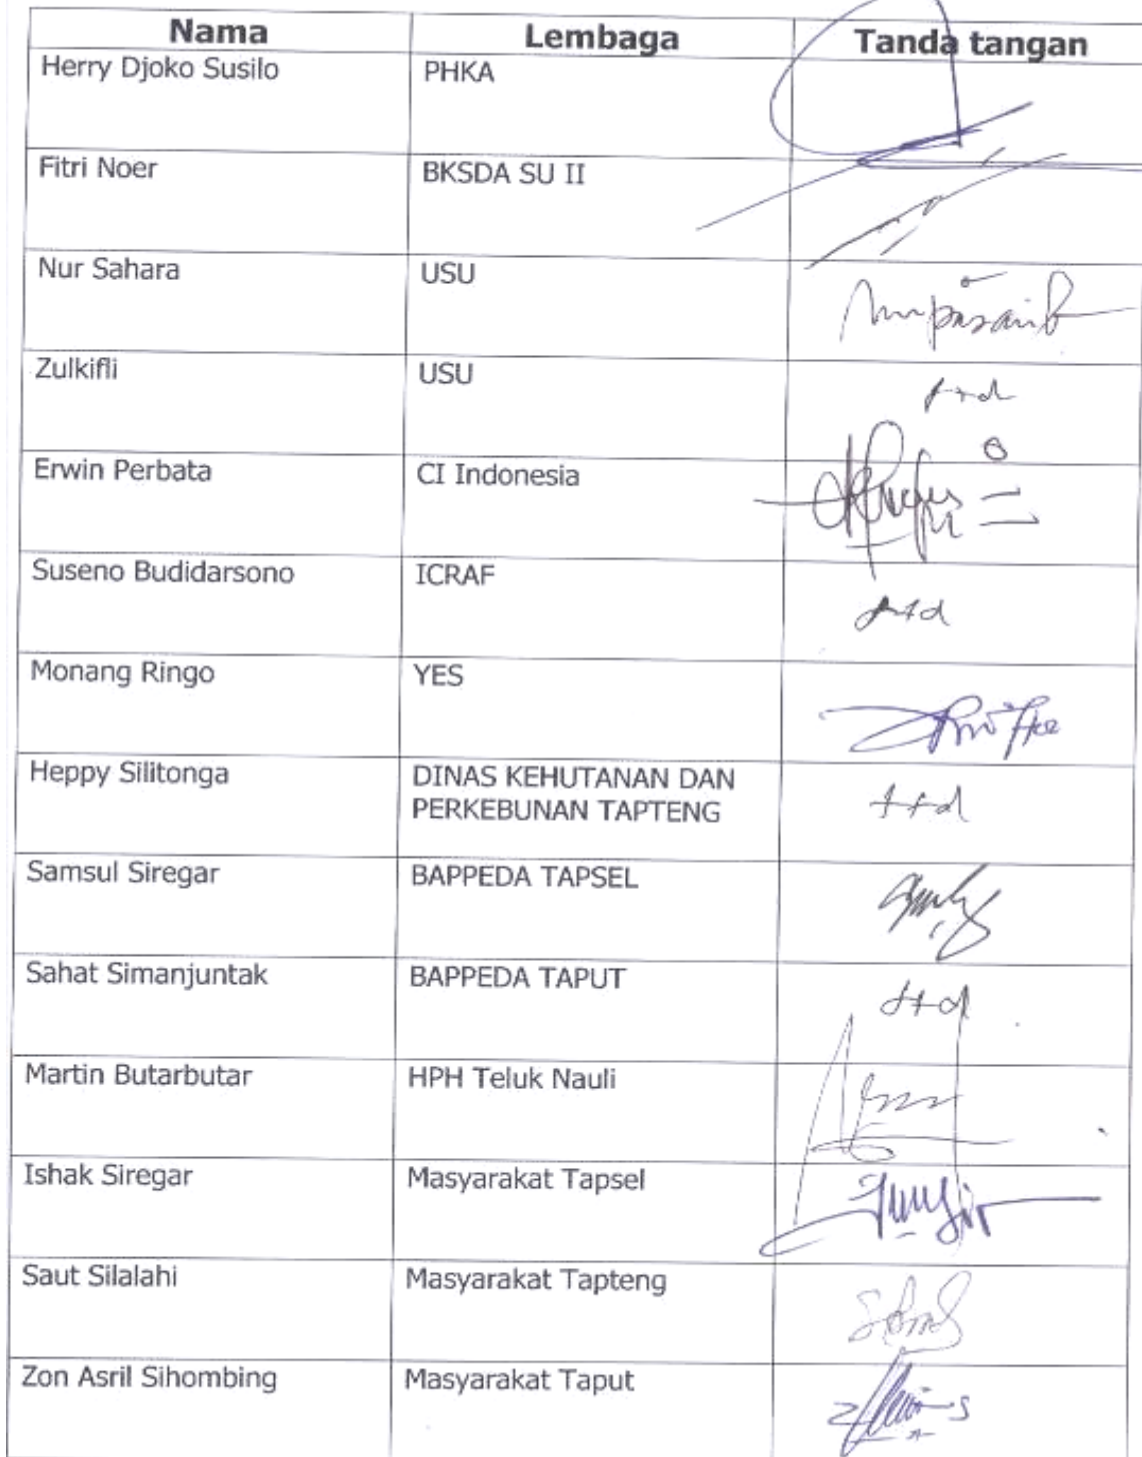 Nama Lembaga Tanda tangan
Herry Djoko Susilo PHKA
Fitri Noer BKSDA SU II
Nur Sahara USU
Zulkifli USU ttd
Erwin Perbata CI Indonesia
Suseno Budidarsono ICRAF ttd
Monang Ringo YES
Heppy Silitonga DINAS KEHUTANAN DAN
PERKEBUNAN TAPTENG ttd
Samsul Siregar BAPPEDA TAPSEL
Sahat Simanjuntak BAPPEDA TAPUT ttd
Martin Butarbutar HPH Teluk Nauli
Ishak Siregar Masyarakat Tapsel
Saut Silalahi Masyarakat Tapteng
Zon Asril Sihombing Masyarakat Taput